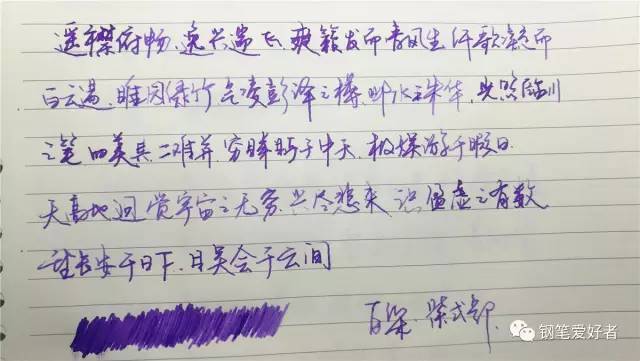 遥襟俯畅、逸兴遄飞,爽籁发而清风生 纤歌凝而
白云遏、睢园绿竹 气凌彭泽之樽,邺水朱华,光照临川
之笔 四美具 二难并,穷睇眄于中天,极娱游于暇日.
天高地迥 觉宇宙之无穷,兴尽悲来,识盈虚之有数
望长安于日下、目吴会于云间
百乐.紫式部.
钢笔爱好者